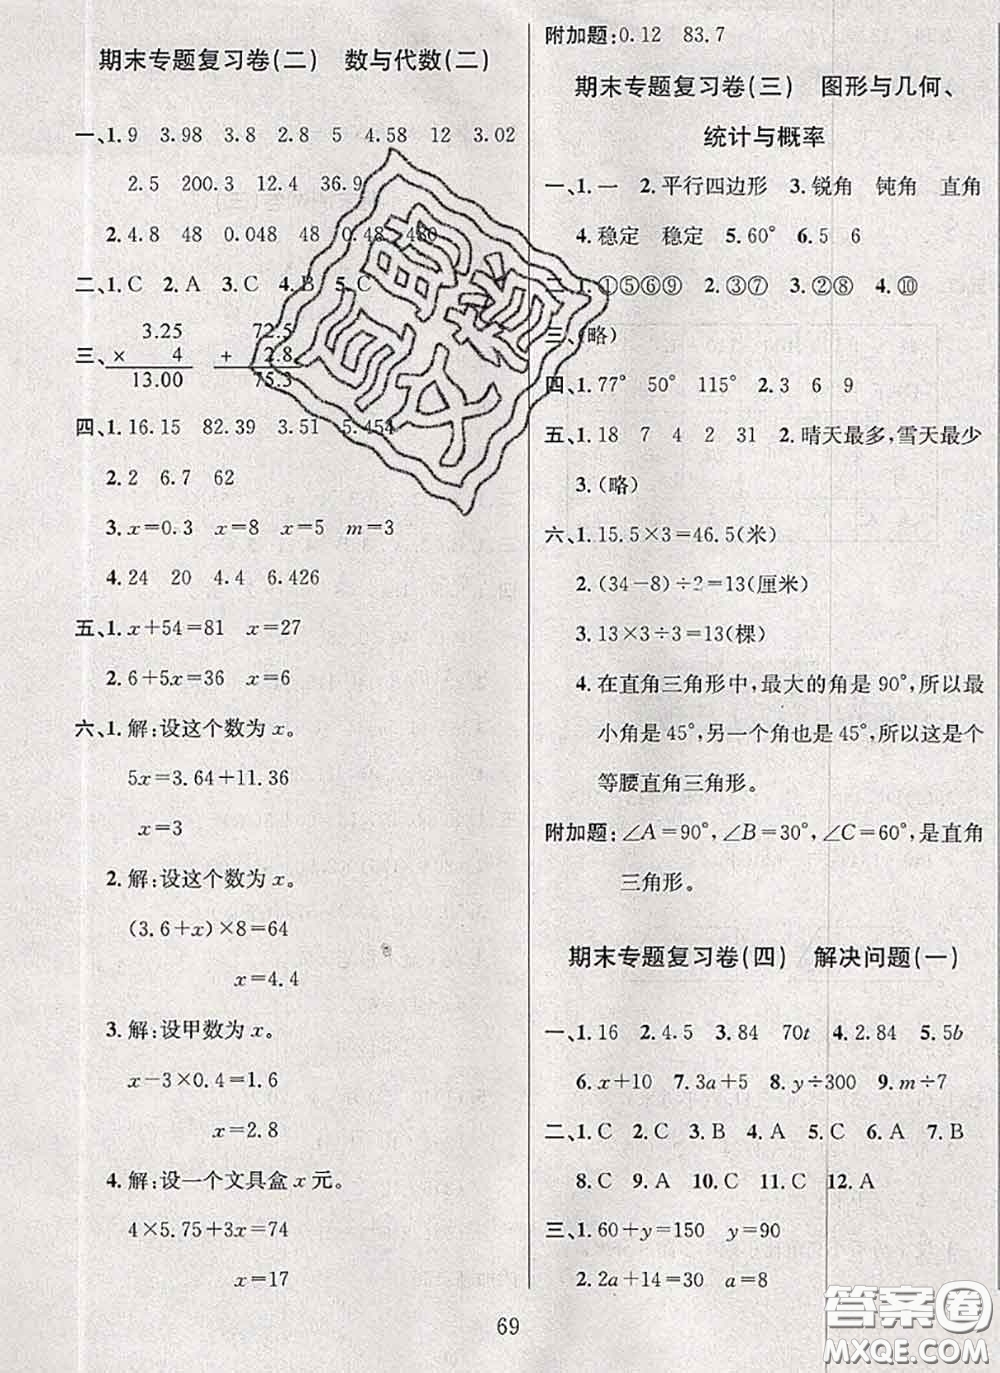 期末专题复习卷(二) 数与代数(二)
一、1.9 3.98 3.8 2.8 5 4.58 12 3.02
2.5 200.3 12.4 36.9
2.4.8 48 0.048 48 0.48 480
二、1.C 2.A 3.C 4.B 5.C
三、
3.25
× 4
13.00
72.5
+ 2.8
75.3
四、1.16.15 82.39 3.51 5.454
2.2 6.7 62
3.x=0.3 x=8 x=5 m=3
4.24 20 4.4 6.426
五、1.x+54=81 x=27
2.6+5x=36 x=6
六、1.解:设这个数为x。
5x=3.64+11.36
x=3
2.解:设这个数为x。
(3.6+x)×8=64
x=4.4
3.解:设甲数为x。
x-3×0.4=1.6
x=2.8
4.解:设一个文具盒x元。
4×5.75+3x=74
x=17
附加题:0.12 83.7
期末专题复习卷(三) 图形与几何、
统计与概率
一、1.一 2.平行四边形 3.锐角 钝角 直角
4.稳定 稳定 5.60° 6.5 6
二、1.①⑤⑥⑨ 2.③⑦ 3.②⑧ 4.⑩
三、(略)
四、1.77° 50° 115° 2.3 6 9
五、1.18 7 4 2 31 2.晴天最多,雪天最少
3.(略)
六、1.15.5×3=46.5(米)
2.(34-8)÷2=13(厘米)
3.13×3÷3=13(棵)
4.在直角三角形中,最大的角是90°,所以最
小角是45°,另一个角也是45°,所以这是个
等腰直角三角形。
附加题:∠A=90°,∠B=30°,∠C=60°,是直角
三角形。
期末专题复习卷(四) 解决问题(一)
一、1.16 2.4.5 3.84 70t 4.2.84 5.5b
6.x+10 7.3a+5 8.y÷300 9.m÷7
二、1.C 2.C 3.B 4.A 5.C 6.A 7.B
8.C 9.A 10.C 11.C 12.A
三、1.60+y=150 y=90
2.2a+14=30 a=8
69
答案圈
MXQE.COM